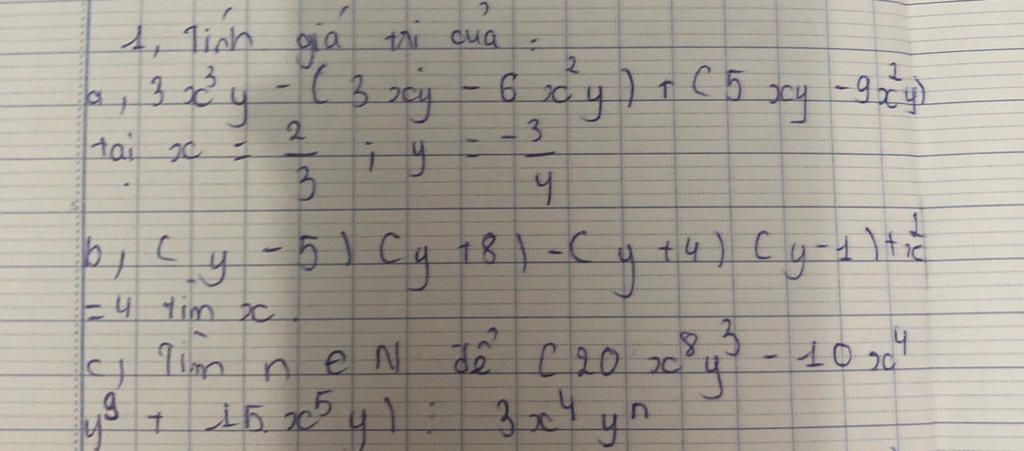 1, Tính giá trị của :
a, 3x³y - (3xy - 6x²y) + (5xy - 9x²y)
tại x = 2/3 ; y = -3/4
b, (y - 5) (y + 8) - (y + 4) (y - 1) + x²
= 4 tìm x.
c, Tìm n ∈ N để (20x⁸y³ - 10x⁴
y⁹ + 15x⁵y) : 3x⁴yⁿ